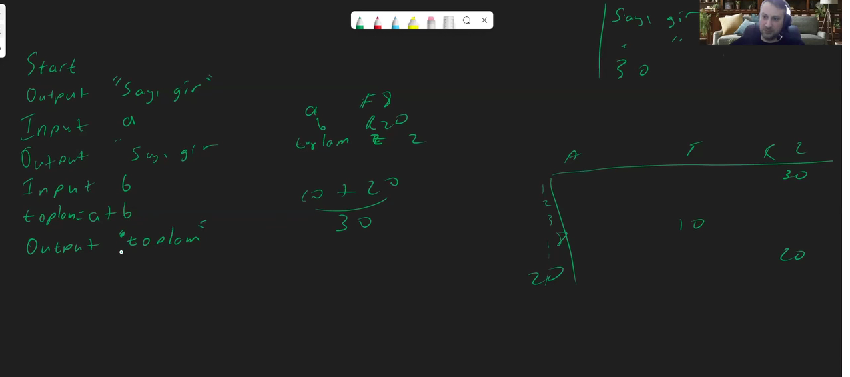 Start
Output "Sayı gir"
Input a
Output "Sayı gir
Input b
toplam=a+b
Output "toplam"
a F8
b R20
toplam Z 2
10 + 20
30
Sayı gir
" "
30
A T K Z
30
1
2
3 10
8
20
20